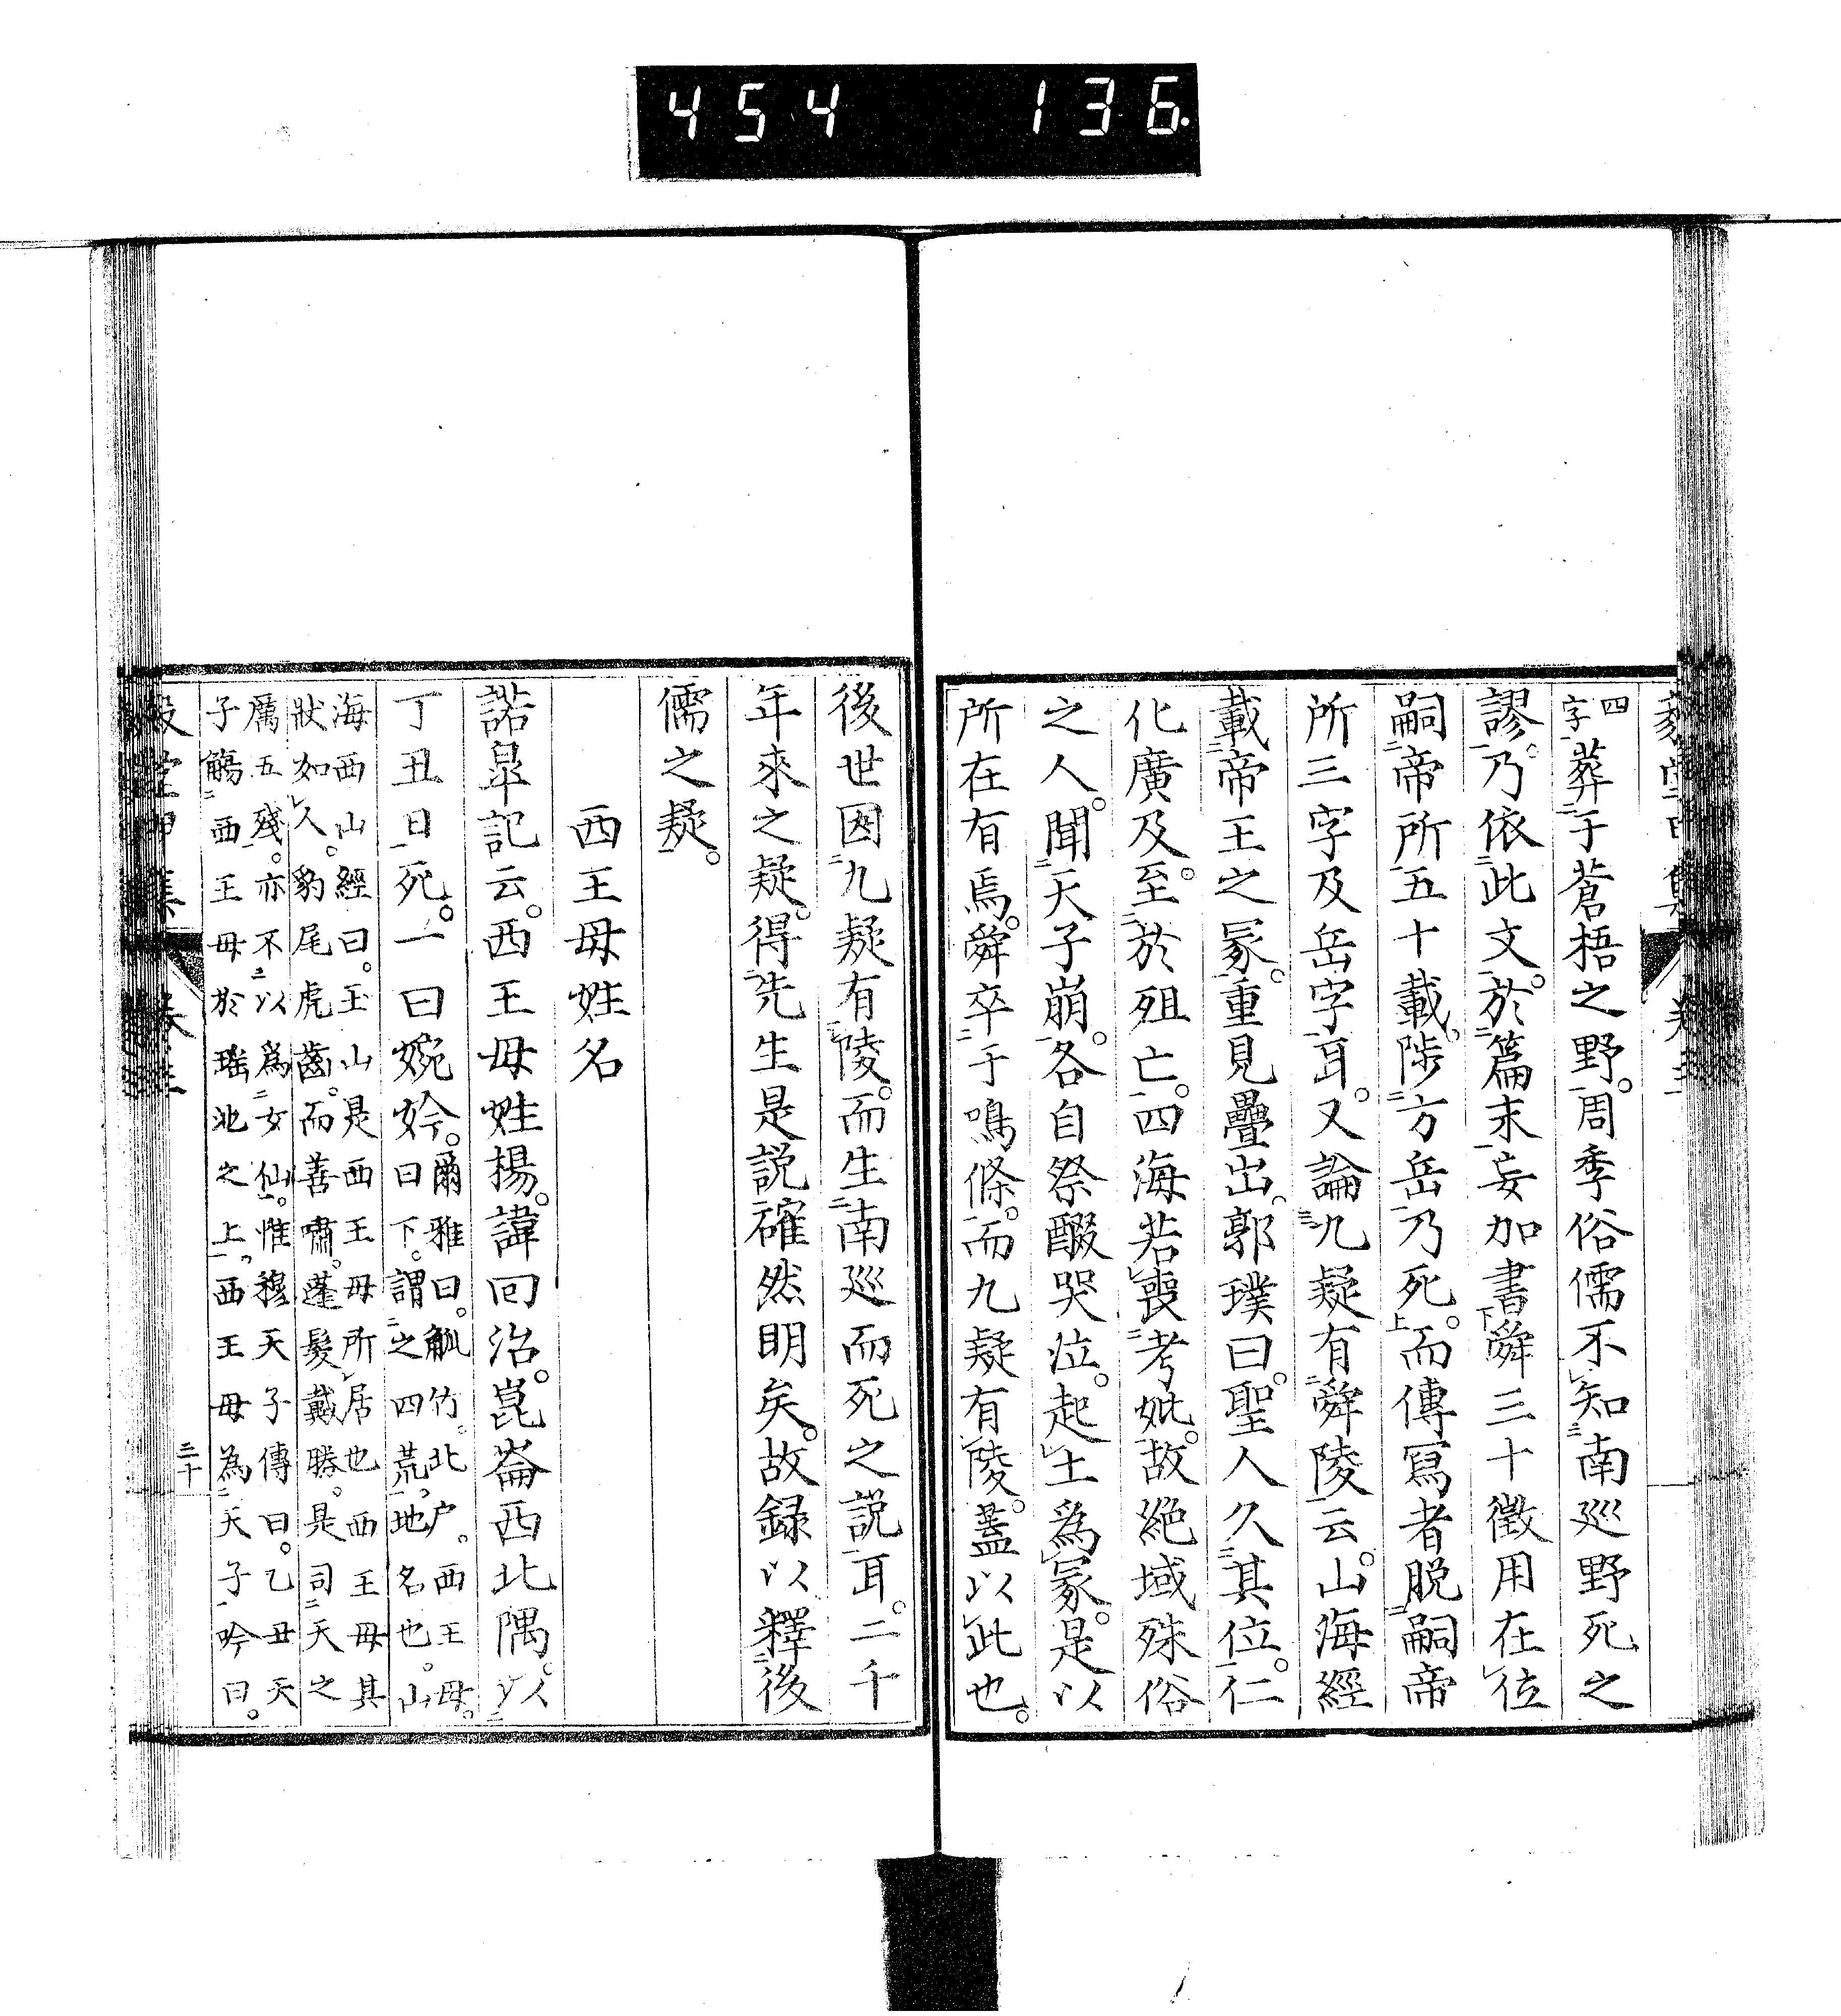 454 136
四字葬于蒼梧之野。周季俗儒不知南巡野死之
謬。乃依此文。於篇末妄加書舜三十徵用在位
嗣帝所五十載。陟方岳乃死。而傳寫者脫嗣帝
所三字及岳字耳。又論九疑有舜陵云。山海經
載帝王之冢。重見疊出。郭璞曰。聖人久其位。仁
化廣及。至於殂亡。四海若喪考妣。故絶域殊俗
之人。聞天子崩。各自祭醊哭泣。起土爲冢。是以
所在有焉。舜卒于鳴條。而九疑有陵。蓋以此也。
後世因九疑有陵。而生南巡而死之説耳。二千
年來之疑。得先生是説確然明矣。故録以釋後
儒之疑。
西王母姓名
諾皐記云。西王母姓楊。諱回治。崑崙西北隅。以
丁丑日死。一曰婉妗。爾雅曰。觚竹。北户。西王母。
日下。謂之四荒。地名也。山
海西山經曰。玉山是西王母所居也西王母其
狀如人。豹尾虎齒。而善嘯。蓬髮戴勝。是司天之
厲五殘。亦不以爲女仙。惟穆天子傳曰。乙丑天
子觴西王母於瑤池之上。西王母為天子吟曰。
三十